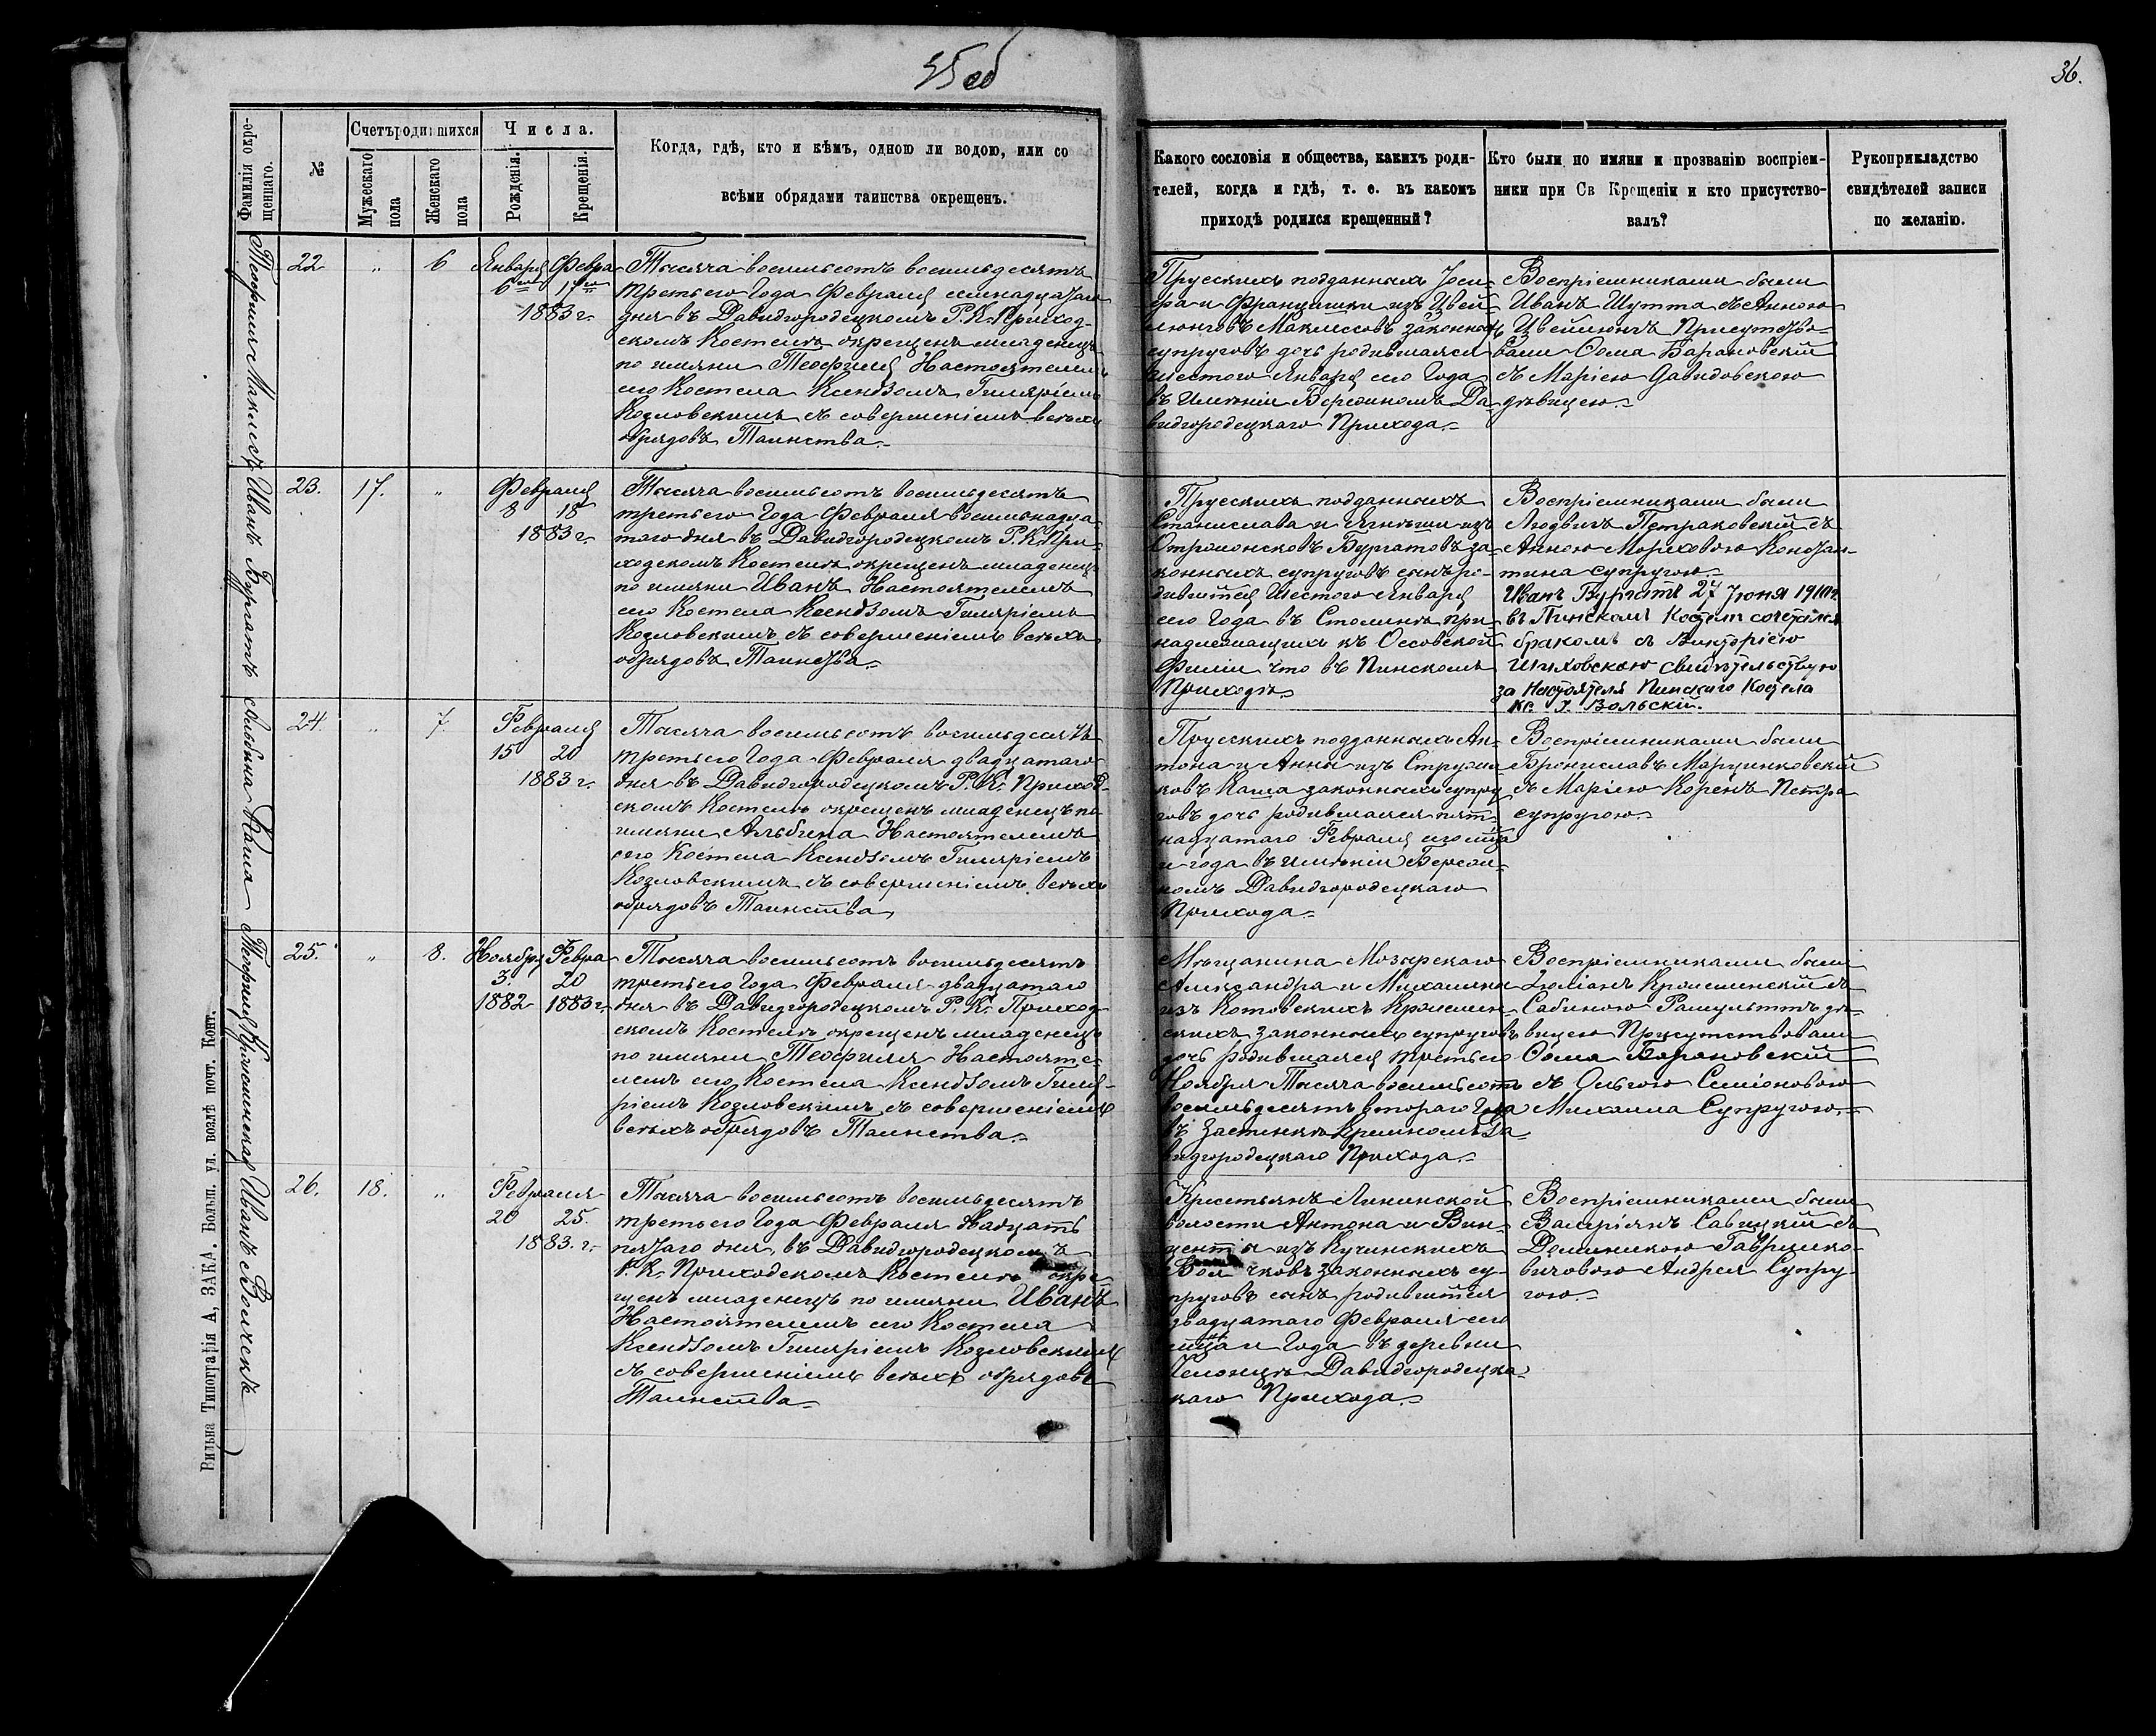 35 об
36.
Фамилія окре-
щеннаго.
№
Счетъ родившихся
Мужескаго
пола
Женскаго
пола
Числа.
Рожденія.
Крещенія.
Когда, гдѣ, кто и кѣмъ, одною ли водою, или со
всѣми обрядами таинства окрещенъ.
Какого сословія и общества, какихъ роди-
телей, когда и гдѣ, т. е. въ какомъ
приходѣ родился крещенный?
Кто были по имяни и прозванію воспріем-
ники при Св Крещеніи и кто присутство-
валъ?
Рукоприкладство
свидѣтелей записи
по желанію.
Теофиля Маклесъ
22
„
6
Января Февра
6го 17го
1883 г.
Тысяча восемьсотъ восемьдесятъ
третьего Года Февраля семнадцатаго
дня въ Давидгородецкомъ Р. К. Приход-
скомъ Костелѣ окрещенъ младенецъ
по имяни Теофиля Настоятелемъ
сего Костела Ксендзомъ Гиляріемъ
Козловскимъ съ совершеніемъ всѣхъ
обрядовъ Таинства.
Прусскихъ подданныхъ Іоси-
фа и Францишки изъ Цвей-
Маклессовъ законныхъ
супруговъ дочь родившаяся
шестого Января сего Года
въ Имѣніи Да-
видгородецкаго Прихода.
Воспріемниками были
Иванъ Шутта съ Анною
Присутство-
вали Ѳома Барановскій
съ Маріею Давидовскою
дѣвицею.
Иванъ Бургатъ
23.
17.
„
Февраля
8 18
1883 г.
Тысяча восемьсотъ восемьдесятъ
третьего Года Февраля восемнадца-
таго дня въ Давидгородецкомъ Р. К. При-
ходскомъ Костелѣ окрещенъ младенецъ
по имяни Иванъ Настоятелемъ
сего Костела Ксендзомъ Гиляріемъ
Козловскимъ съ совершеніемъ всѣхъ
обрядовъ Таинства.
Прусскихъ подданныхъ
Станислава и изъ
Бургатовъ за-
конныхъ супруговъ сынъ ро-
дившійся Шестого Января
сего Года въ Столинѣ при-
надлежащихъ къ Оссовской
Филіи что въ Пинскомъ
Приходѣ.
Воспріемниками были
Людвигъ Петраковскій съ
Анною
супругою.
Иванъ Бургатъ 27 Іюня
въ Пинскомъ Костелѣ сочетался
бракомъ съ Викторіею
свидѣтельствую
за Настоятеля Пинскаго Костела
Кс. Вольскій.
Альбина Каша
24.
„
7.
Февраля
15 20
1883 г.
Тысяча восемьсотъ восемьдесятъ
третьего Года Февраля двадцатаго
дня въ Давидгородецкомъ Р. К. Приход-
скомъ Костелѣ окрещенъ младенецъ по
имяни Альбина Настоятелемъ
сего Костела Ксендзомъ Гиляріемъ
Козловскимъ съ совершеніемъ всѣхъ
обрядовъ Таинства,
Прусскихъ подданныхъ Ан-
тона и Анны изъ
Каша законныхъ супру
говъ дочь родившаяся пят-
надцатаго Февраля
и года въ имѣніи
Давидгородецкаго
Прихода.
Воспріемниками были
Брониславъ Марцинковскій
съ Маріею Коренъ Петра
супругою.
Теофиля Кремпинская
25.
„
8.
Ноября Февра
3. 20
1882 1883 г.
Тысяча восемьсотъ восемьдесятъ
третьего Года Февраля двадцатаго
дня въ Давидгородецкомъ Р. К. Приход
скомъ Костелѣ окрещенъ младенецъ
по имяни Теофиля Настояте-
лемъ сего Костела Ксендзомъ Гиля-
ріемъ Козловскимъ съ совершеніемъ
всѣхъ обрядовъ Таинства.
Мѣщанина Мозырскаго
Александра и Михалины
изъ Котовскихъ
законныхъ супруговъ
дочь родившаяся третьего
Ноября Тысяча восемьсотъ
восемьдесятъ втораго Года
въ Застѣнкѣ Да-
видгородецкаго Прихода.
Воспріемниками были
Юліанъ съ
Сабиною дѣ-
вицею Присутствовали
Ѳома Барановскій
съ Ольгою Семіоновою
Михаила Супругою.
Иванъ Волчекъ
26.
18.
„
Февраля
20 25.
1883. г.
Тысяча восемьсотъ восемьдесятъ
третьего Года Февраля двадцать
пятаго дня, въ Давидгородецкомъ
Р. К. Приходскомъ Костелѣ окре-
щенъ младенецъ по имяни Иванъ
Настоятелемъ сего Костела
Ксендзомъ Гиляріемъ Козловскимъ
съ совершеніемъ всѣхъ обрядовъ
Таинства.
Крестьянъ Ленинской
волости Антона и Вин-
центи изъ Кучинскихъ
законныхъ су-
пруговъ сынъ родившійся
двадцатаго Февраля сего
и Года въ деревни
Давидгородецка-
каго Прихода.
Воспріемниками были
Валеріянъ Савицкій съ
Доминикою Гаврилко-
вичовою Андрея Супру-
гою.
Вильна Типографія А, ЗАКА. Больш. ул. возлѣ почт. Конт.